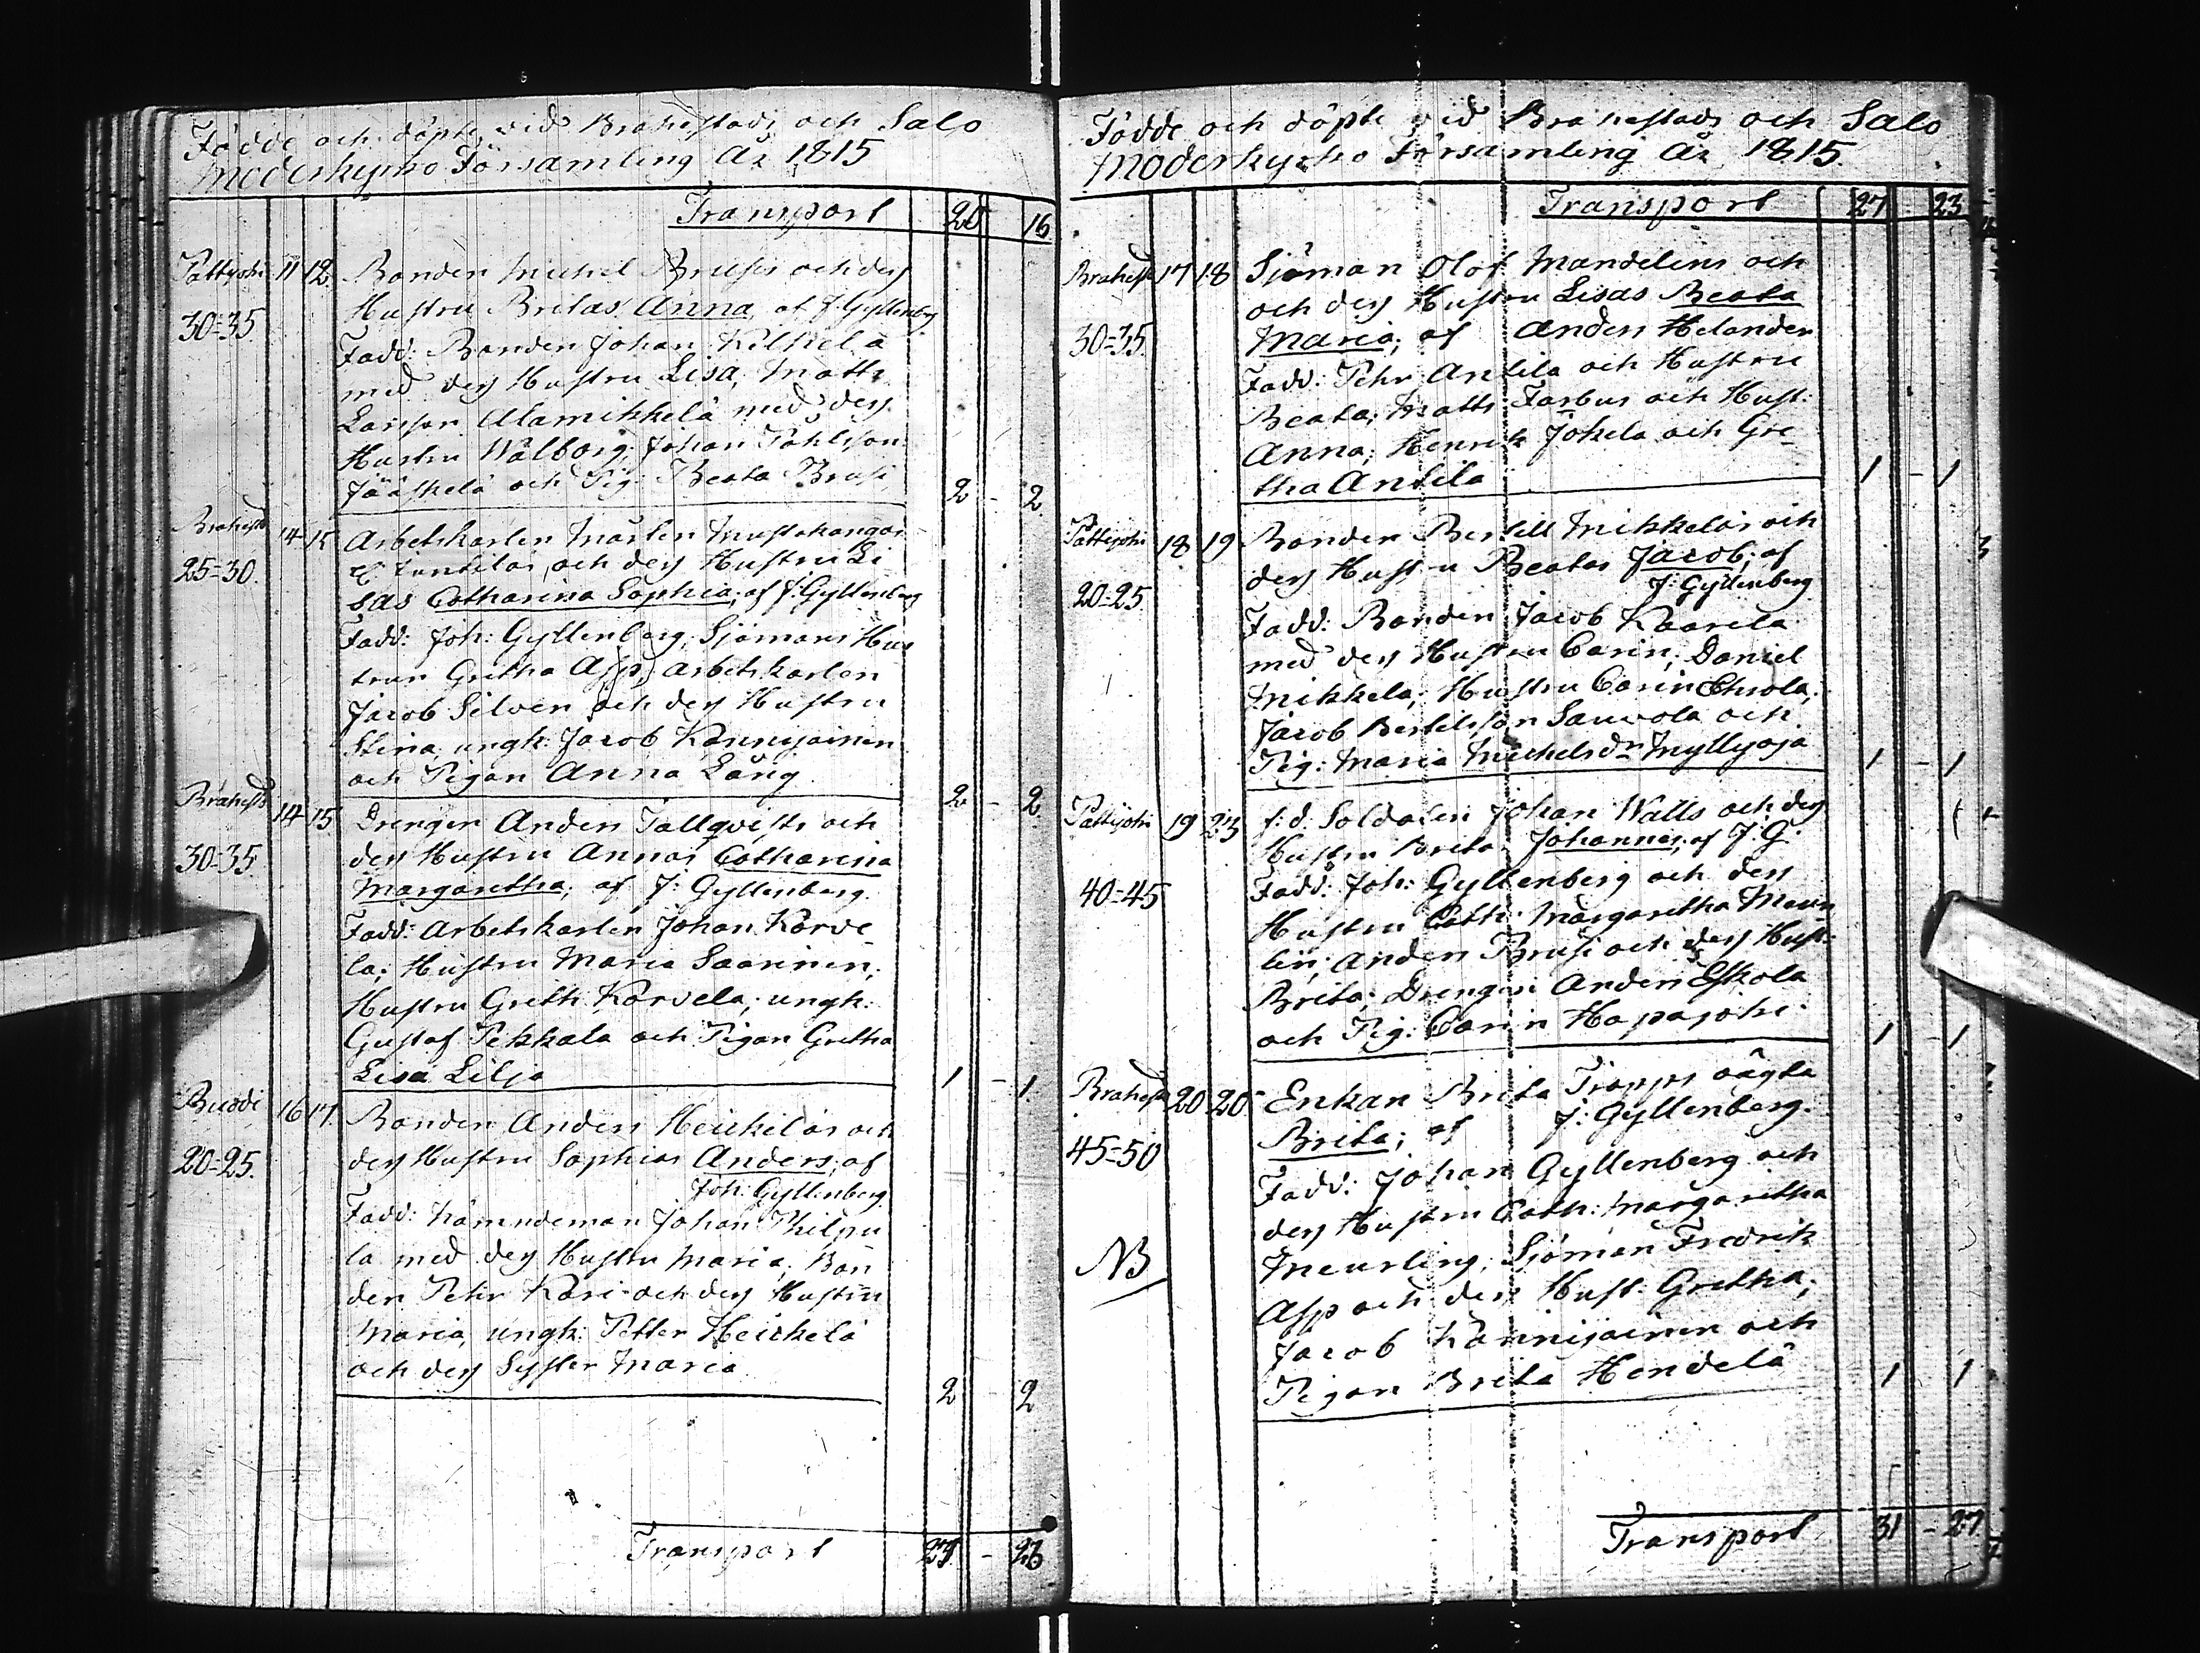 Födde och döpte vid Brahestads och Salo
Moderkyrko Församling År 1815
Transport 20 16
Pattijoki 11 12 Bonden Michel Brusis och dess
30=35. Hustru Britas Anna, af J: Gyllenberg
Fadd: Bonden Johan Kilkelä
med dess Hustru Lisa, Matts
Larsson Alamikkelä med dess
Hustru Walborg; Johan Pahlsson
Jääskelä och Pig: Beata Brusi 2 - 2
Brahestd 14 15 Arbetskarlen Mårten Mustakangas
25=30. och dess Hustru Li
sas Catharina Sophia; af J: Gyllenberg
Fadd: Joh: Gyllenberg, Sjömans Hus
trun Gretha Asp, arbetskarlen
Jacob Silven och dess Hustru
Stina, ungk: Jacob Kännijainen
och Pigan Anna Lång 2 - 2
Brahestd 14 15 Drengen Anders Tallqvists och
30=35. dess Hustru Annas Catharina
Margaretha; af J: Gyllenberg.
Fadd: Arbetskarlen Johan Korve
la; Hustru Maria Saarinen;
Hustru Greth: Korvela; ungk:
Gustaf Pekkala och Pigan Gretha
Lisa Lilja 1 - 1
16 17 Bonden Anders Heickiläs och
20=25. dess Hustru Sophias Anders, af
Joh: Gyllenberg
Fadd: Nämndeman Johan Philpu
la med dess Hustru Maria, Bon
den Pehr Kari och dess Hustru
Maria, ungk: Petter Heickelä
och dess Syster Maria 2 2
Transport 27 - 23
Födde och döpte vid Brahestads och Salo
Moderkyrko Församling År 1815.
Transport 27 - 23
Brahestd 17 18 Sjöman Olof Mandelins och
och dess Hustru Lisas Beata
30=35. Maria; af Anders Helander
Fadd: Pehr Antila och Hustru
Beata; Matts Forbus och Hust:
Anna; Henrik Jokela och Gre
tha Antila 1 - 1
Pattijoki 18 19 Bonden Bertill Mikkeläs och
dess Hustru Beatas Jacob; af
20=25. J: Gyllenberg
Fadd: Bonden Jacob Kaarela
med dess Hustru Carin; Daniel
Mikkela; Hustru Carin
Jacob Bertelsson Sauvola och
Pig: Maria Michelsdr Myllyoja 1 - 1
Pattijoki 19 23 f: d: Soldaten Johan Walls och dess
Hustru Britas Johannes; af J: G:
40=45 Fadd: Joh: Gyllenberg och dess
Hustru Cath: Margaretha Meur
lin; Anders Brusi och dess Hust:
Brita; Drengen Anders Eskola
och Pig: Carin Hapajoki 1 - 1
Brahestd 20 20 Enkan Brita Trapps oägta
Brita; af J: Gyllenberg.
45=50 Fadd: Johan Gyllenberg och
dess Hustru Cath: Margaretha
NB Meurling; Sjöman Fredrik
Asp och dess Hust: Gretha;
Jacob Kännijainen och
Pigan Brita Hendelä 1 1
Transport 31 - 27